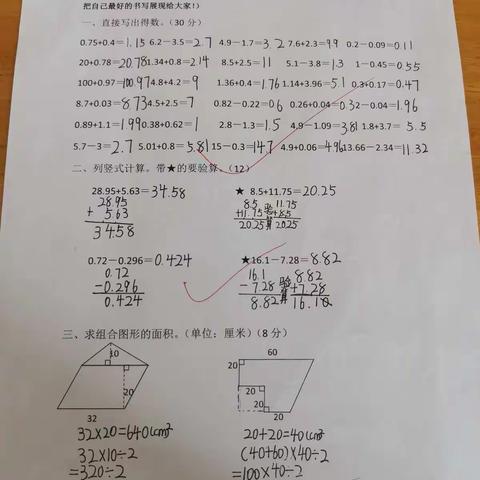 把自己最好的书写展现给大家!)
一、直接写出得数。(30分)
0.75+0.4=1.15 6.2−3.5=2.7 4.9−1.7=3.2 7.6+2.3=9.9 0.2−0.09=0.11
20+0.78=20.78 1.34+0.8=2.14 8.5+2.5=11 5.1−3.8=1.3 1−0.45=0.55
100+0.97=100.97 4.8+4.2=9 1.36+0.4=1.76 1.14+3.96=5.1 0.3+0.17=0.47
8.7+0.03=8.73 4.5+2.5=7 0.82−0.22=0.6 0.26+0.04=0.3 2−0.04=1.96
0.89+1.1=1.99 0.38+0.62=1 2.8−1.3=1.5 4.9−1.09=3.81 1.8+3.7=5.5
5.7−3=2.7 5.01+0.8=5.81 15−0.3=14.7 4.9+0.06=4.96 13.66−2.34=11.32
二、列竖式计算。带★的要验算。(12)
28.95+5.63=34.58 ★ 8.5+11.75=20.25
28.95 8.5 验 11.75
+ 5.63 +11.75 算 +8.5
34.58 20.25 20.25
0.72−0.296=0.424 ★16.1−7.28=8.82
0.72 16.1 验 8.82
−0.296 −7.28 算 +7.28
0.424 8.82 16.10
三、求组合图形的面积。(单位:厘米)(8分)
10 60
20 20
20
20
32 20
32×20=640cm² 20+20=40cm
32×10÷2 (40+60)×40÷2
=320÷2 =100×40÷2